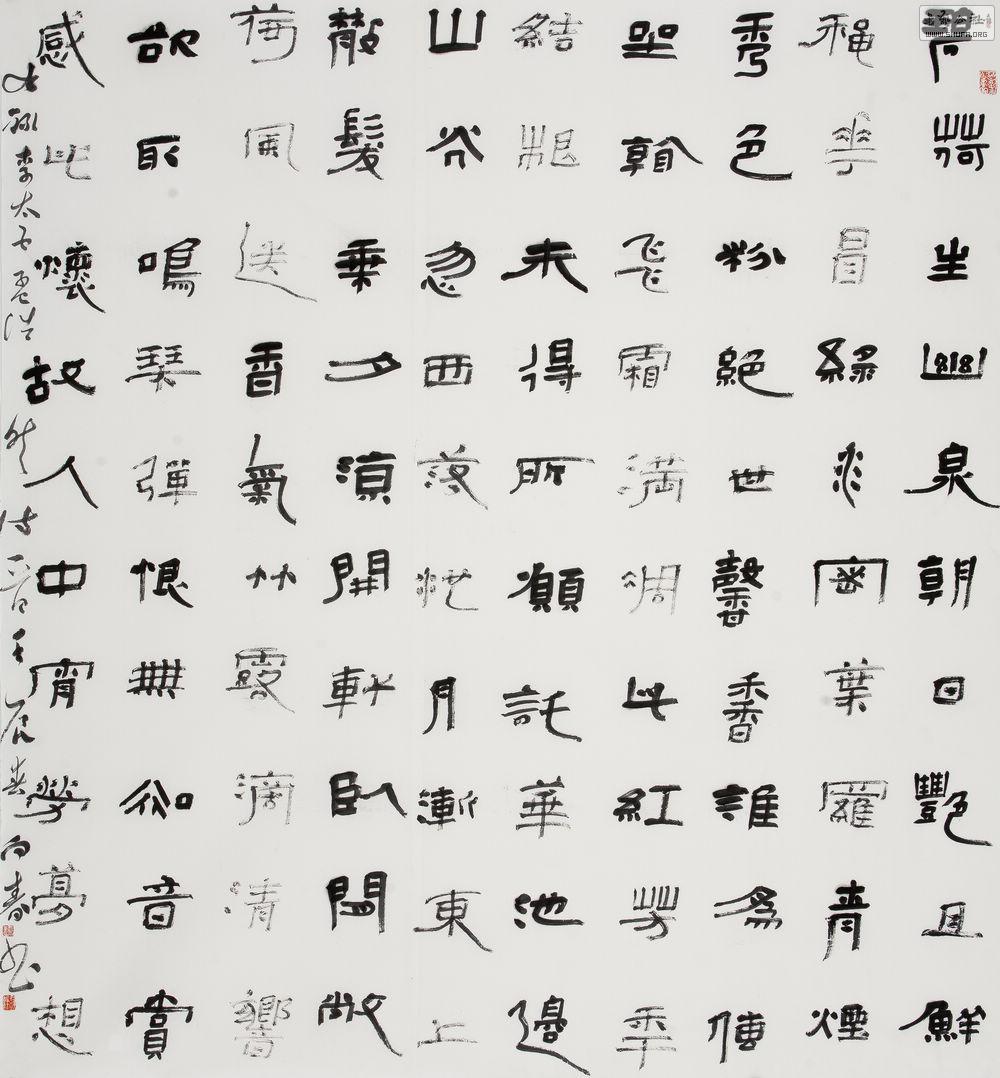 碧荷生幽泉朝日豔且鮮
穐華冒綠水密葉羅青煙
秀色粉絕世馨香誰爲傳
坐看飛霜滿凋此紅芳年
結根未得所願託華池邊
山光忽西落池月漸東上
散髮乘夕涼開軒臥閑敞
荷風送香氣竹露滴清響
欲取鳴琴彈恨無知音賞
感此懷故人中宵勞夢想
右錄李太白孟浩然詩二首壬辰春向春書
WWW.SHUFA.ORG